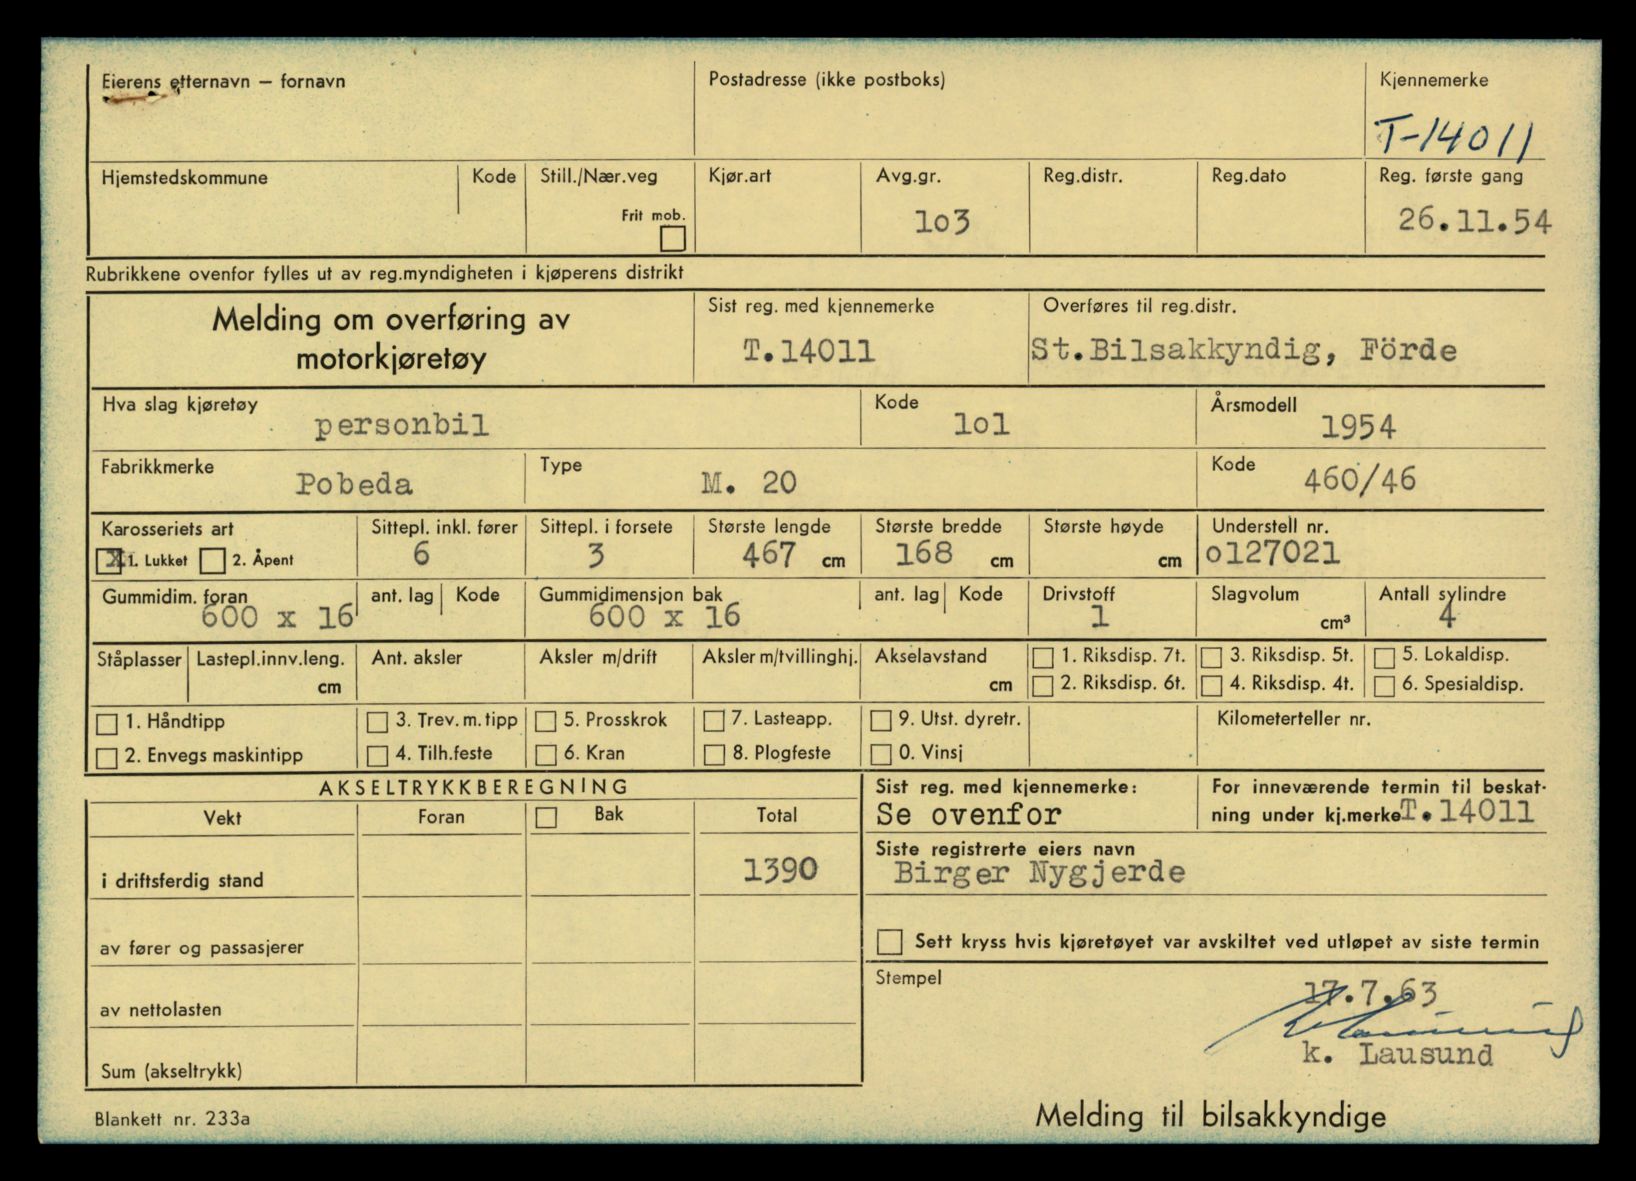 Eierens etternavn – fornavn
Postadresse (ikke postboks)
Kjennemerke
T-14011
Hjemstedskommune
Kode
Still./Nær.veg
Frit mob.
Kjør.art
Avg.gr.
1o3
Reg.distr.
Reg.dato
Reg. første gang
26.11.54
Rubrikkene ovenfor fylles ut av reg.myndigheten i kjøperens distrikt
Melding om overføring av
motorkjøretøy
Sist reg. med kjennemerke
T.14011
Overføres til reg.distr.
St.Bilsakkyndig, Förde
Hva slag kjøretøy
personbil
Kode
1o1
Årsmodell
1954
Fabrikkmerke
Pobeda
Type
M. 20
Kode
460/46
Karosseriets art
X 1. Lukket 2. Åpent
Sittepl. inkl. fører
6
Sittepl. i forsete
3
Største lengde
467 cm
Største bredde
168 cm
Største høyde
cm
Understell nr.
o127021
Gummidim. foran
600 x 16
ant. lag
Kode
Gummidimensjon bak
600 x 16
ant. lag
Kode
Drivstoff
1
Slagvolum
cm³
Antall sylindre
4
Ståplasser
Lastepl.innv.leng.
cm
Ant. aksler
Aksler m/drift
Aksler m/tvillinghj.
Akselavstand
cm
1. Riksdisp. 7t.
2. Riksdisp. 6t.
3. Riksdisp. 5t.
4. Riksdisp. 4t.
5. Lokaldisp.
6. Spesialdisp.
1. Håndtipp
2. Envegs maskintipp
3. Trev. m. tipp
4. Tilh.feste
5. Prosskrok
6. Kran
7. Lasteapp.
8. Plogfeste
9. Utst. dyretr.
0. Vinsj
Kilometerteller nr.
AKSELTRYKKBEREGNING
Vekt
Foran
Bak
Total
i driftsferdig stand
1390
av fører og passasjerer
av nettolasten
Sum (akseltrykk)
Sist reg. med kjennemerke:
Se ovenfor
For inneværende termin til beskat-
ning under kj.merke T.14011
Siste registrerte eiers navn
Birger Nygjerde
Sett kryss hvis kjøretøyet var avskiltet ved utløpet av siste termin
Stempel
17.7.63
k. Lausund
Blankett nr. 233a
Melding til bilsakkyndige